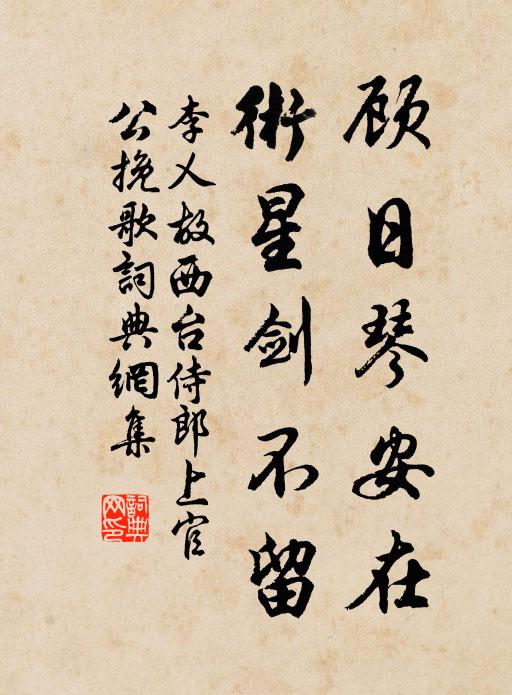 顾日琴安在
衝星剑不留
李乂故西台侍郎上官
公挽歌詞典網集
詞典網印